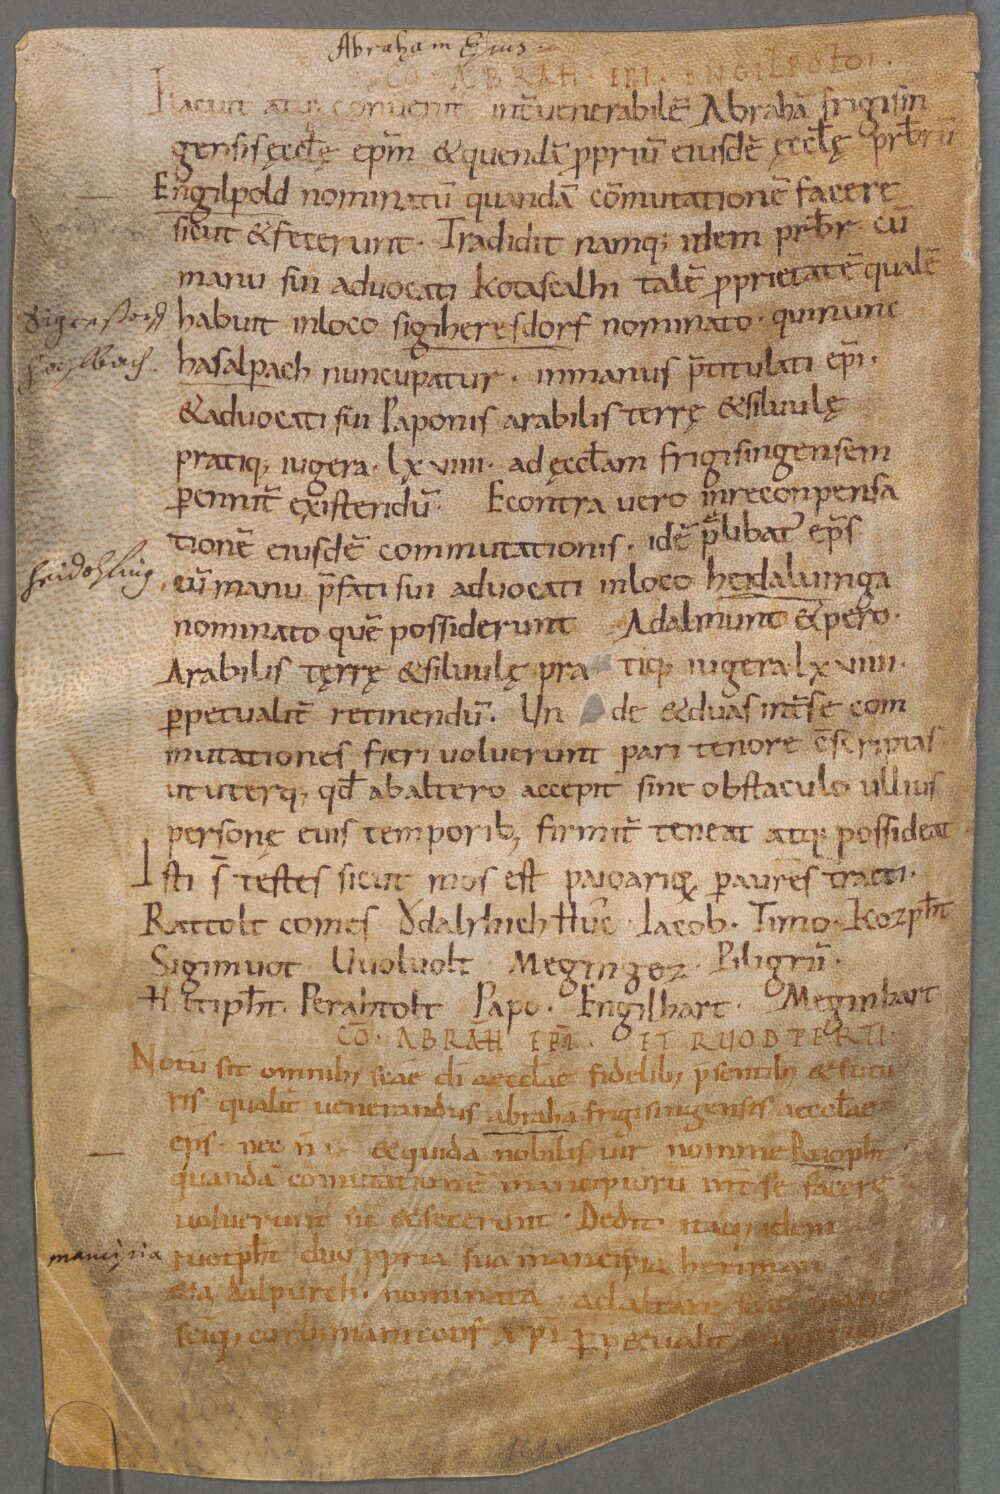 Abraham Epus
CŌ · ABRAH · EPI · ENGILPOLDI ·
Placuit atq; convenit int̄ venerabilē Abrahā frigisin
gensis ęccłę ep̄m &quendā ꝓpriū eiusdē ęccłę pr̄b̄rū
Engilpold nominatū quandā cōmutationē facere
sicut &fecerunt · Tradidit namq; idem pr̄b̄r · cū
manu sui advocati kotascalhi talē ꝓprietatē qualē
habuit inloco sigiheresdorf nominato · quinunc
hasalpach nuncupatur · inmanus p̄titulati ep̄i ·
&advocati sui Paponis arabilis terrę &siluulę
pratiq; iugera · lxviiii · ad ęccłam frigisingensem
ꝑennit̄ existendū · Econtra vero inreconpensa
tionē eiusdē commutationis · idē p̄libat᷑ ep̄s
cū manu p̄fati sui advocati inloco heidaluinga
nominato quē possiderunt Adalmunt &pero ·
Arabilis tęrrę &siluulę pra tiq; iugera · lxviiii ·
ꝑpetualit̄ retinendū · Un de &duas int̄se com
mutationes fieri voluerunt pari tenore c̄scriptas
ut uterq; qd̄ abaltero accepit sine obstaculo ullius
personę euis temporib; firmit̄ teneat atq; possideat
Isti s̄ testes sicut mos est paioariọꝝ ꝑaures tracti ·
Rattolt comes Ŏdalschich Huc̄ · Iacob · Timo · Kozp̄ht
Sigimuot Uuoluolt Megingoz · Piligrū ·
Hettip̄ht · Perahtolt Papo · Engilhart · Meginhart
CŌ · ABRAH̄ EPĪ · ET RUODPERTI ·
Notū sit omnib; scāe dī aecclae fidelib; p̄sentib; &futu
ris · qualit̄ venerandus abrahā frigisingensis aecclae
ep̄s · nec n̄ &quidā nobilis vir nomine Ruop̄ht
quandā cōmutationē mancipiorū int̄ se facere
voluerunt sic &fecerunt · Dedit itaq; idem
ruotp̄ht duo ꝓpria sua mancipia heriman
nominata · ad altare
ꝑpetualit̄
sigersdorf
haslbach
heidohling
mancipia